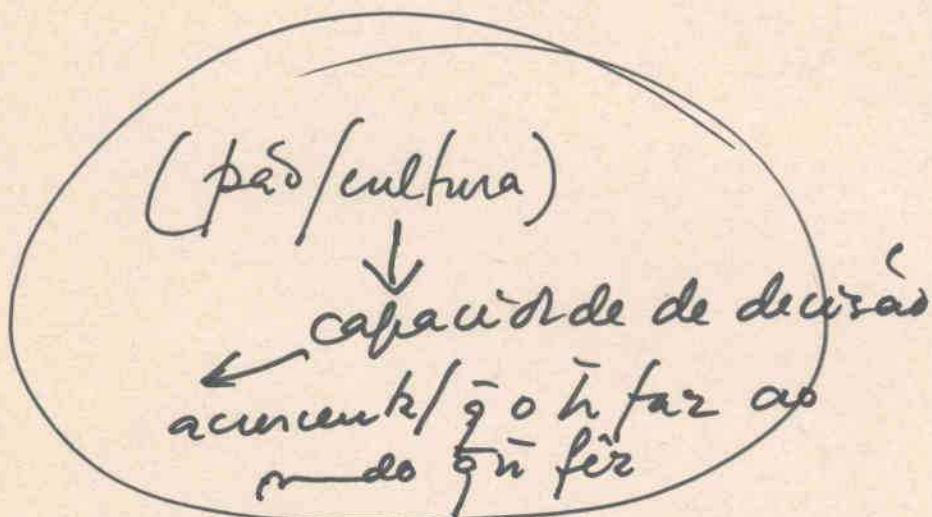 (pão/cultura)
capacidade de decisão
acrescent/ q̄ o h̄ faz ao
do q̄ ñ fêz